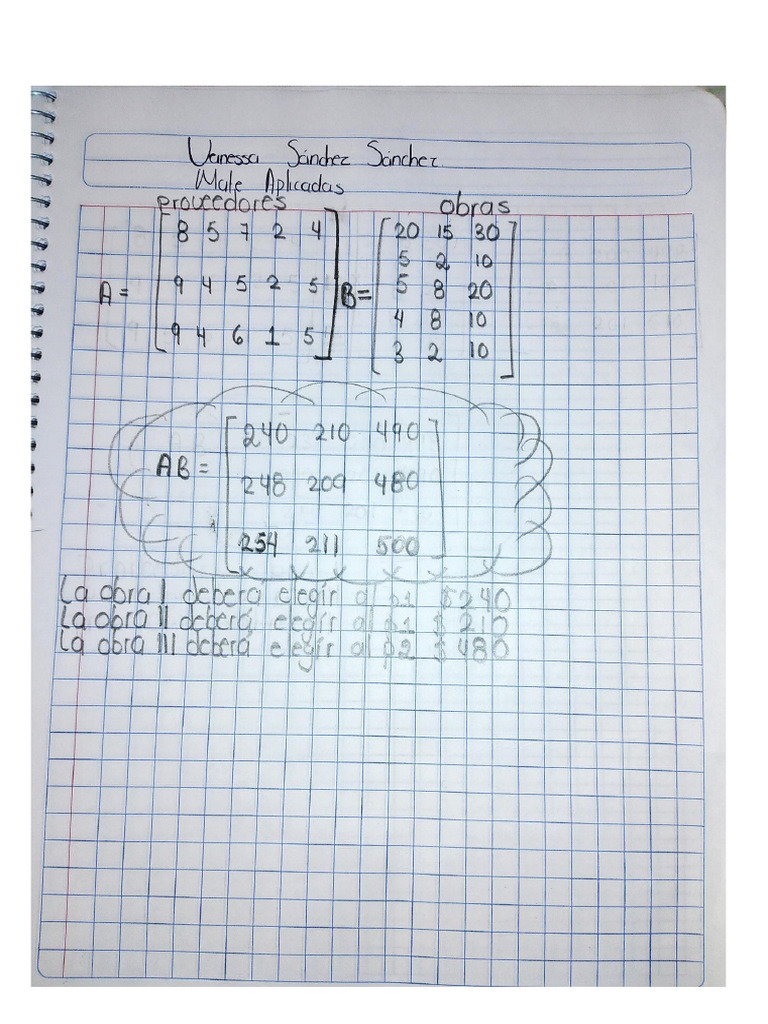 Vanessa Sánchez Sánchez
Mate Aplicadas
proveedores obras
8 5 7 2 4 20 15 30
5 2 10
A = 9 4 5 2 5 B = 5 8 20
4 8 10
9 4 6 1 5 3 2 10
240 210 490
AB = 248 209 480
254 211 500
La obra I deberá elegir al p1 $240
La obra II deberá elegir al p1 $ 210
La obra III deberá elegir al p2 $ 480